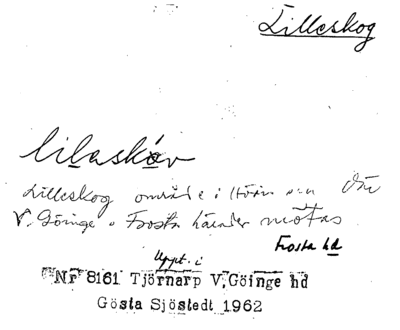 Lilleskog
lilaskóv
Lilleskog område i där
V. Göinge o Frosta härader mötas
Frosta hd
Uppt. i
NF 8161 Tjörnarp V. Göinge hd
Gösta Sjöstedt 1962